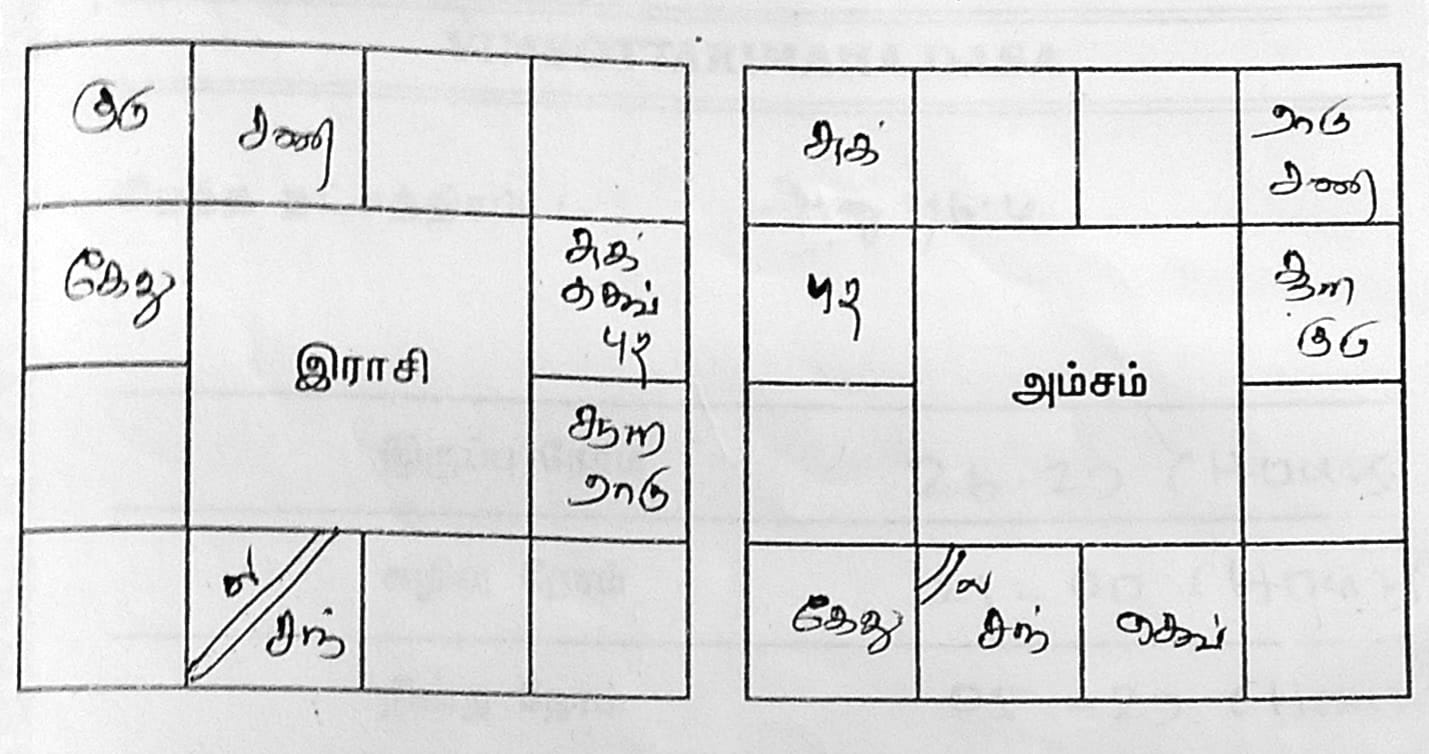 குரு
சனி
கேது
சுக்
செவ்
புத
இராசி
சூரி
ராகு
ல
சந்
சுக்
ராகு
சனி
புத
சூரி
குரு
அம்சம்
கேது
ல
சந்
செவ்